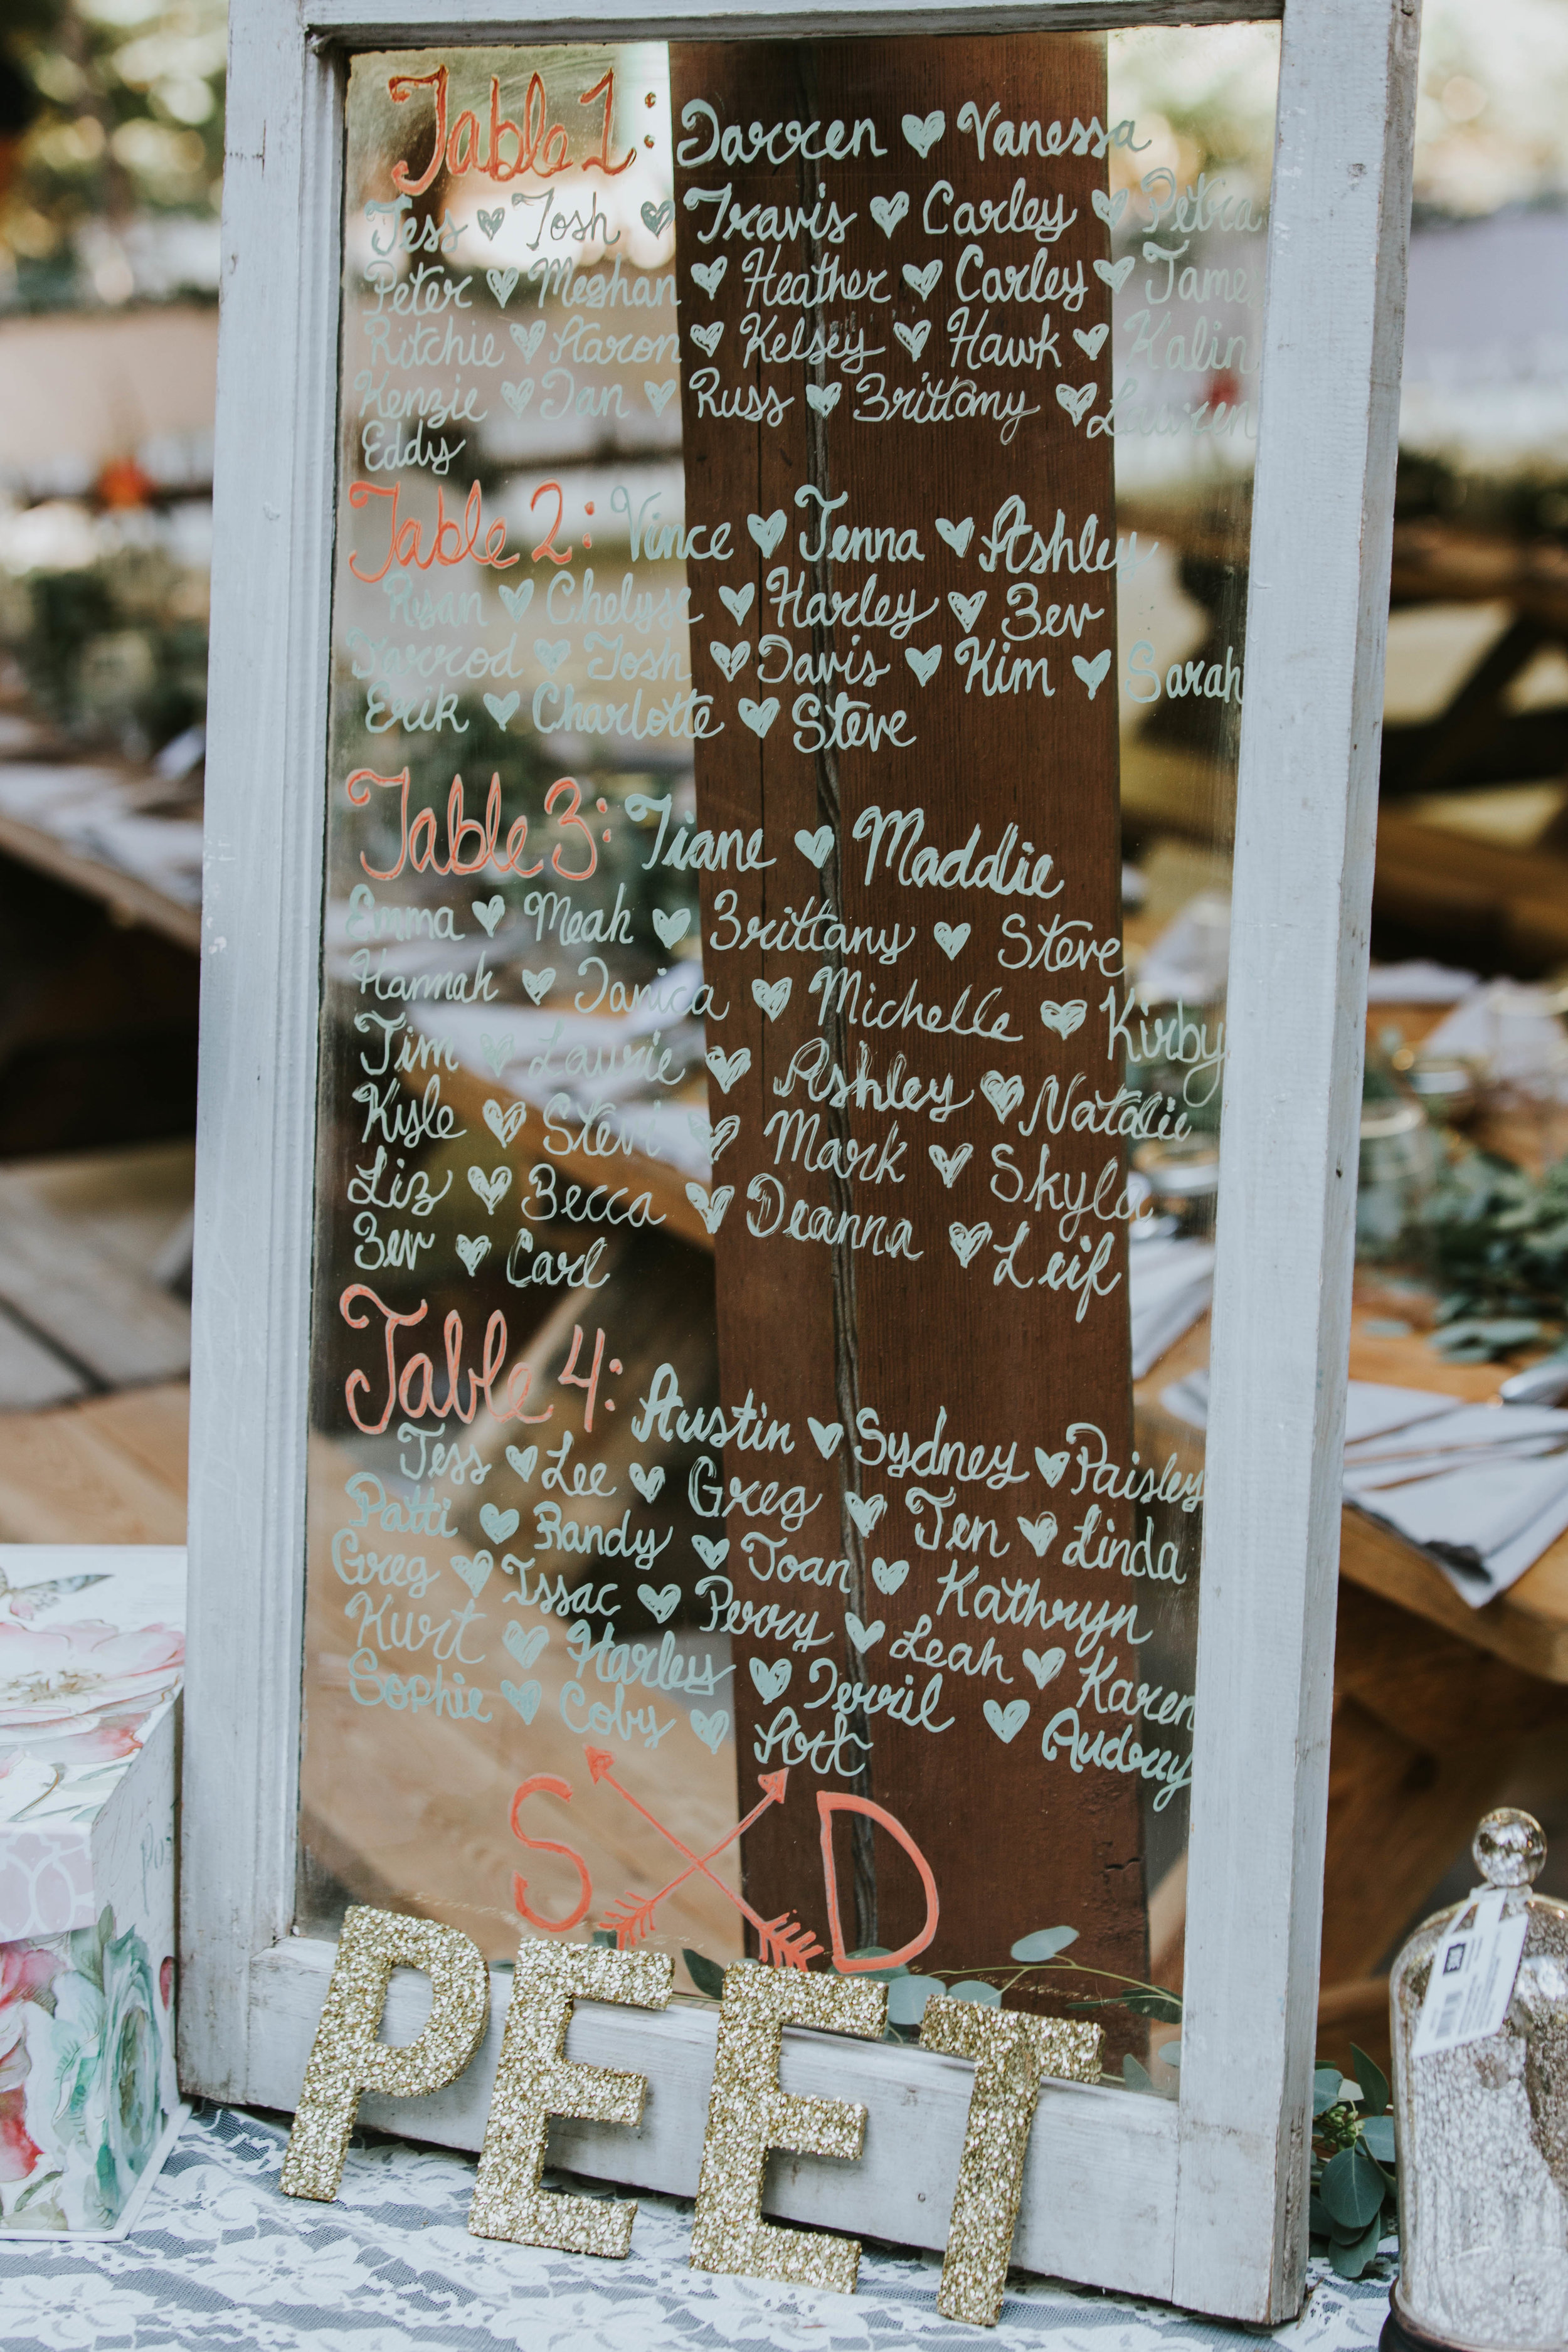 Table 1: Darren ♥ Vanessa
Tess ♥ Josh ♥ Travis ♥ Carley ♥ Petra
Peter ♥ Meghan ♥ Heather ♥ Carley ♥ Jame
Ritchie ♥ Aaron ♥ Kelsey ♥ Hawk ♥ Kalin
Kenzie ♥ Dan ♥ Russ ♥ Brittany ♥ Lauren
Eddy
Table 2: Vince ♥ Jenna ♥ Ashley
Ryan ♥ Chelyse ♥ Harley ♥ Bev
Jarrod ♥ Josh ♥ Davis ♥ Kim ♥ Sarah
Erik ♥ Charlotte ♥ Steve
Table 3: Tiane ♥ Maddie
Emma ♥ Meah ♥ Brittany ♥ Steve
Hannah ♥ Danica ♥ Michelle ♥ Kirby
Tim ♥ Laurie ♥ Ashley ♥ Natalie
Kyle ♥ Stevi ♥ Mark ♥ Skyla
Liz ♥ Becca ♥ Deanna ♥ Leif
Bev ♥ Carl
Table 4: Austin ♥ Sydney ♥ Paisley
Tess ♥ Lee ♥ Greg ♥ Jen ♥ Linda
Patti ♥ Randy ♥ Joan ♥ Kathryn
Greg ♥ Issac ♥ Perry ♥ Leah ♥ Karen
Kurt ♥ Harley ♥ Derril ♥ Audray
Sophie ♥ Coby ♥
S D
PEET